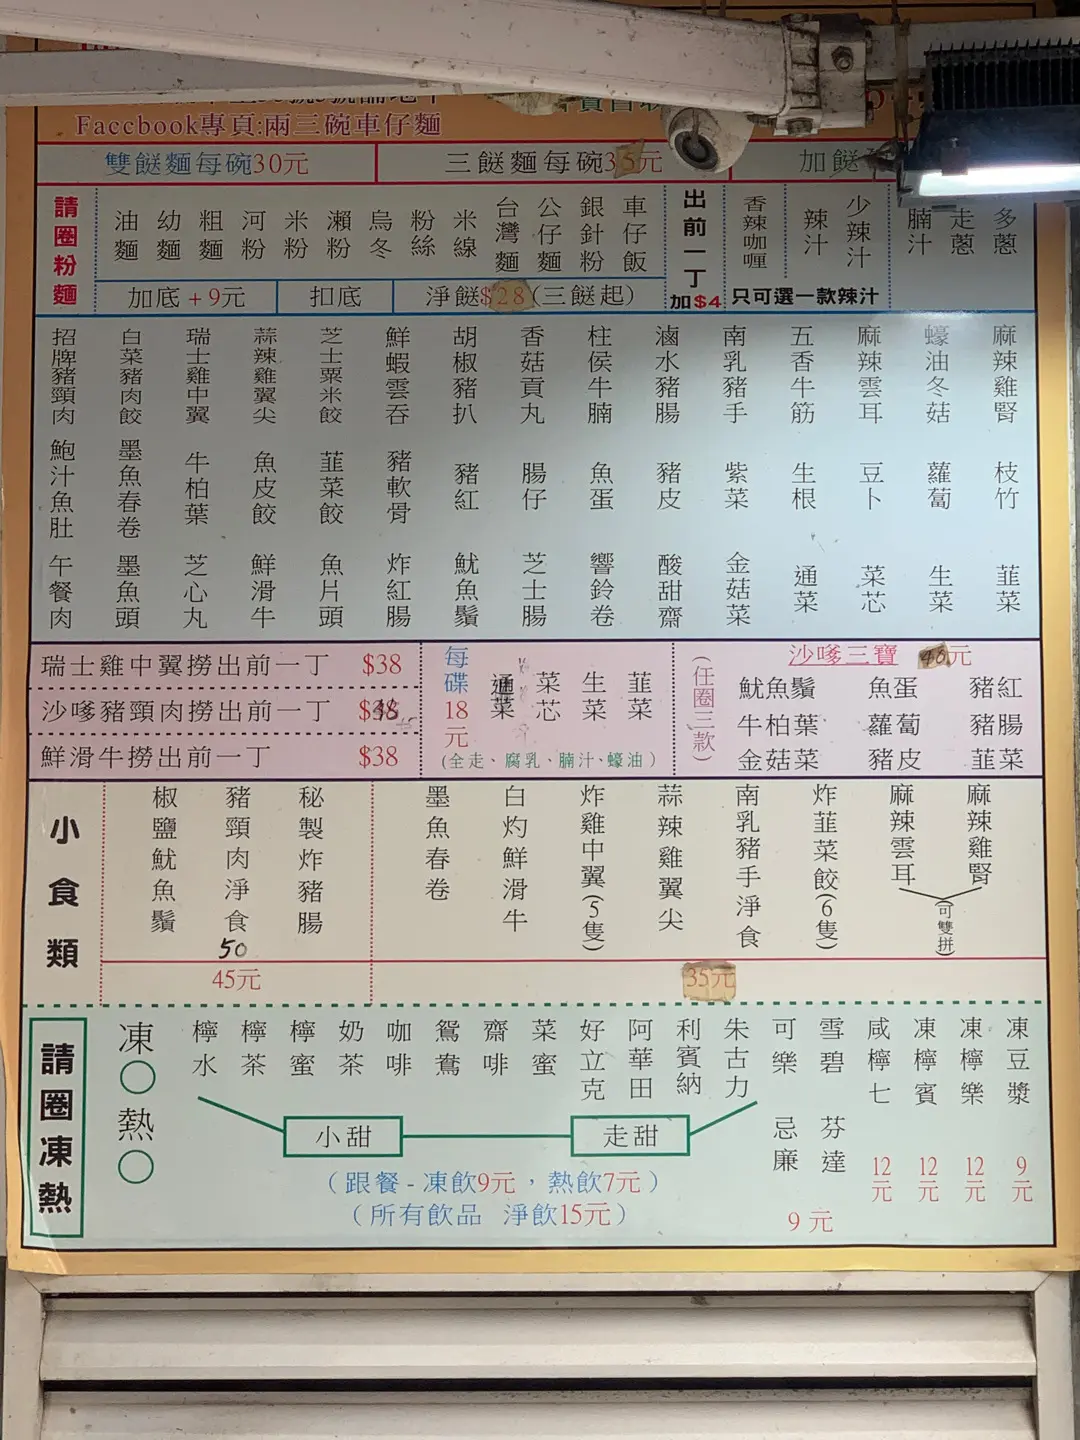 Faccbook專頁:兩三碗車仔麵
雙餸麵每碗30元
三餸麵每碗35元
加餸
請圈粉麵
油麵 幼麵 粗麵 河粉 米粉 瀨粉 烏冬 粉絲 米線 台灣麵 公仔麵 銀針粉 車仔飯
出前一丁加$4
香辣咖喱 辣汁 少辣汁
只可選一款辣汁
腩汁 走蔥 多蔥
加底+9元
扣底
淨餸$28(三餸起)
招牌豬頸肉 白菜豬肉餃 瑞士雞中翼 蒜辣雞翼尖 芝士粟米餃 鮮蝦雲吞 胡椒豬扒 香菇貢丸 柱侯牛腩 滷水豬腸 南乳豬手 五香牛筋 麻辣雲耳 蠔油冬菇 麻辣雞腎
鮑汁魚肚 墨魚春卷 牛柏葉 魚皮餃 韮菜餃 豬軟骨 豬紅 腸仔 魚蛋 豬皮 紫菜 生根 豆卜 蘿蔔 枝竹
午餐肉 墨魚頭 芝心丸 鮮滑牛 魚片頭 炸紅腸 魷魚鬚 芝士腸 響鈴卷 酸甜齋 金菇菜 通菜 菜芯 生菜 韮菜
瑞士雞中翼撈出前一丁 $38
沙嗲豬頸肉撈出前一丁
鮮滑牛撈出前一丁 $38
每碟18元
通菜 菜芯 生菜 韮菜
(全走、腐乳、腩汁、蠔油)
(任圈三款)
沙嗲三寶 元
魷魚鬚 魚蛋 豬紅
牛柏葉 蘿蔔 豬腸
金菇菜 豬皮 韮菜
小食類
椒鹽魷魚鬚 豬頸肉淨食 秘製炸豬腸
50
45元
墨魚春卷 白灼鮮滑牛 炸雞中翼(5隻) 蒜辣雞翼尖 南乳豬手淨食 炸韮菜餃(6隻) 麻辣雲耳 麻辣雞腎
(可雙拼)
35元
請圈凍熱
凍○熱○
檸水 檸茶 檸蜜 奶茶 咖啡 鴛鴦 齋啡 菜蜜 好立克 阿華田 利賓納 朱古力
小甜
走甜
(跟餐-凍飲9元，熱飲7元)
(所有飲品 淨飲15元)
可樂 雪碧 忌廉 芬達
9元
咸檸七 12元
凍檸賓 12元
凍檸樂 12元
凍豆漿 9元